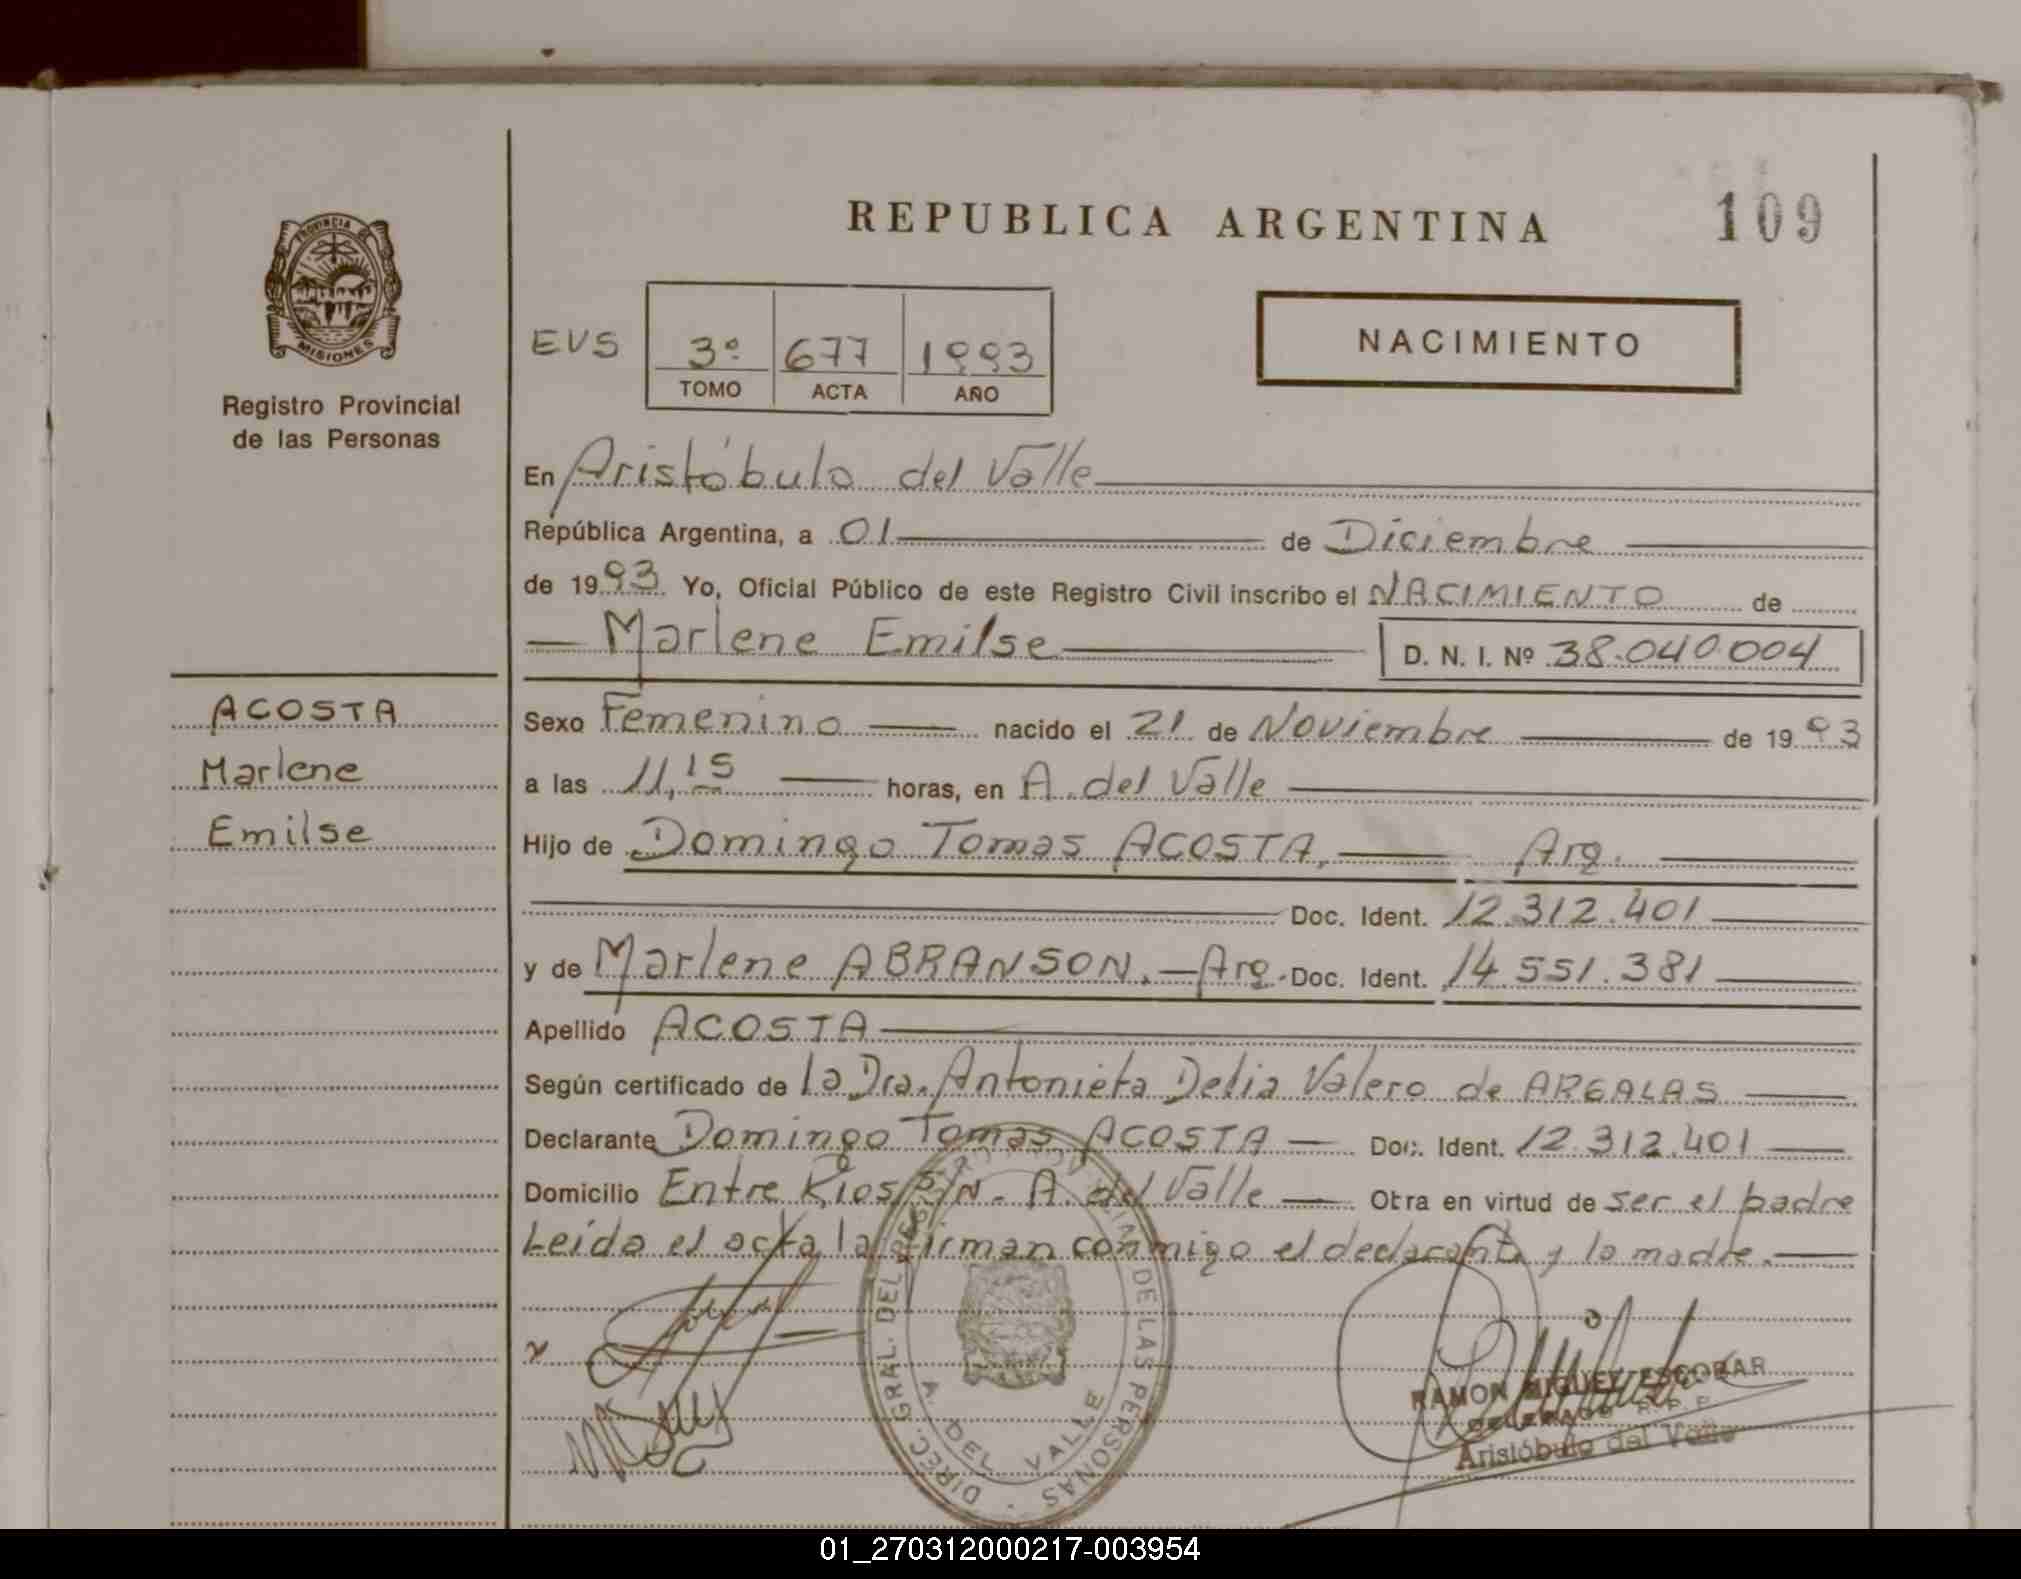 REPUBLICA ARGENTINA
109
PROVINCIA DE
MISIONES
Registro Provincial
de las Personas
EVS
3º 677 1993
TOMO ACTA AÑO
NACIMIENTO
En Aristóbulo del Valle
República Argentina, a 01 de Diciembre
de 1993 Yo, Oficial Público de este Registro Civil inscribo el NACIMIENTO de
Marlene Emilse D. N. I. Nº 38.040.004
ACOSTA
Marlene
Emilse
Sexo Femenino nacido el 21 de Noviembre de 1993
a las 11,15 horas, en A. del Valle
Hijo de Domingo Tomas ACOSTA, Arg.
Doc. Ident. 12.312.401
y de Marlene ABRANSON. Arg. Doc. Ident. 14.551.381
Apellido ACOSTA
Según certificado de la Dra. Antonieta Delia Valero de ARGALAS
Declarante Domingo Tomas ACOSTA Doc. Ident. 12.312.401
Domicilio Entre Rios S/N. A. del Valle Obra en virtud de ser el padre
Leída el acta la firman conmigo el declarante y la madre.
DIREC. GRAL. DEL REGISTRO DE LAS PERSONAS
A. DEL VALLE
RAMON MIGUEL ESCOBAR
DELEGADO R. P. P.
Aristóbulo del Valle
01_270312000217-003954